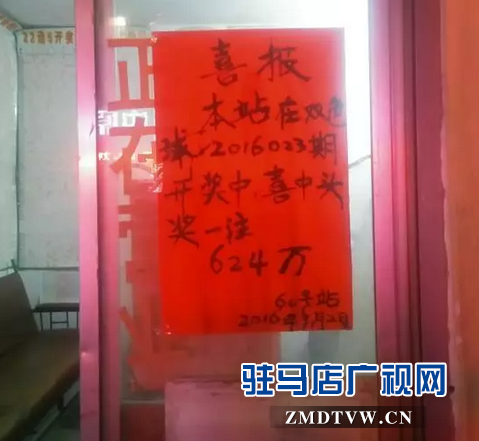 喜报
本站在双色
球:2016023期
开奖中喜中头
奖一注
624万
60号站
2016年3月2日
正在
驻马店广视网
ZMDTVW.CN